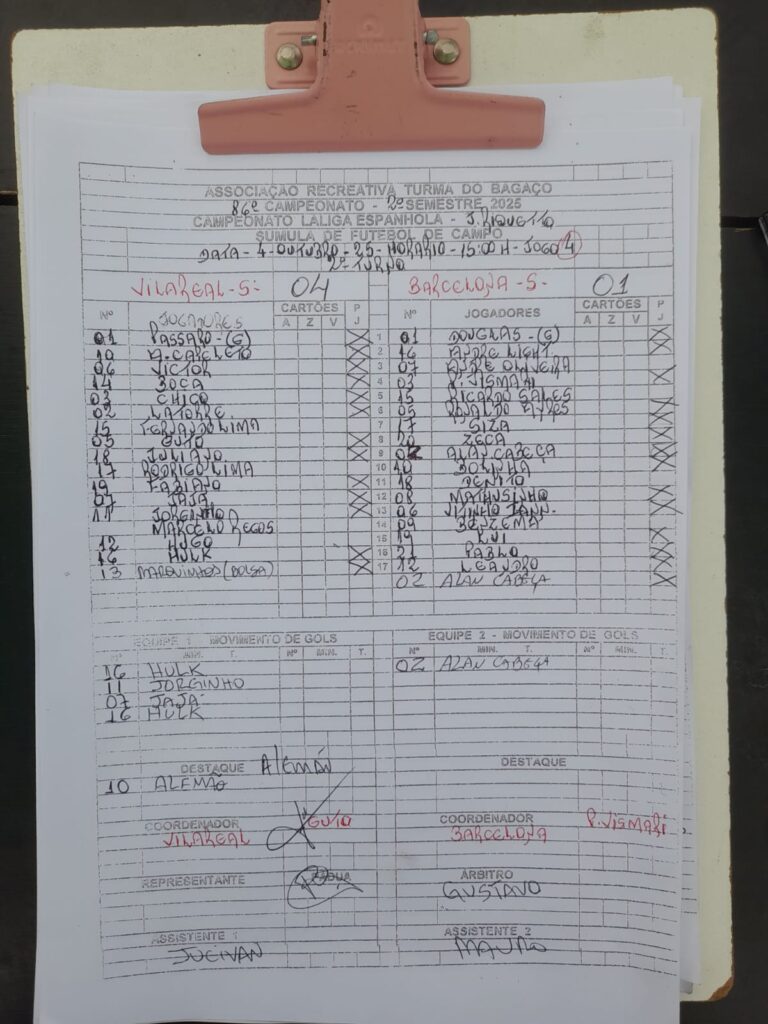 ASSOCIAÇÃO RECREATIVA TURMA DO BAGAÇO
86º CAMPEONATO - 2º SEMESTRE 2025
CAMPEONATO LALIGA ESPANHOLA - J. RIQUETTO
SUMULA DE FUTEBOL DE CAMPO
DATA - 4 - OUTUBRO - 25 - HORARIO - 15:00 H - JOGO 4
2º TURNO
VILAREAL - S - 04 BARCELONA - S - 01
Nº JOGADORES CARTÕES P Nº JOGADORES CARTÕES P
A Z V J A Z V J
01 PASSARO - (G) X 1 01 DOUGLAS - (G) X
10 X 2 16 ANDRE LIGHT. X
06 VICTOR X 3 07 ANDRE OLIVEIRA
14 BOCA X 4 03 P. VISMARI X
03 CHICO X 5 15 RICARDO SALES
02 LATORRE X 6 05 RONALDO AYRES X
15 FERNANDO LIMA 7 17 SIZA X
05 GUTO X 8 20 ZECA X
18 JULIANO X 9 02 ALAN CABEÇA X
17 RODRIGO LIMA 10 10 BOLINHA
19 FABIANO X 11 18 BENITO
07 JAJA X 12 08 MATHUSINHO X
11 JORGINHO X 13 06 X
MARCELO REGOS 14 09 BENZEMA
12 HUGO 15 19 RUI
16 HULK X 16 21 PABLO X
13 MARQUINHOS (BOLSA) X 17 12 LEANDRO X
02 ALAN CABEÇA X
EQUIPE 1 - MOVIMENTO DE GOLS EQUIPE 2 - MOVIMENTO DE GOLS
Nº MIN. T. Nº MIN. T. Nº MIN. T. Nº MIN. T.
16 HULK 02 ALAN CABEÇA
11 JORGINHO
07 JAJA
16 HULK
DESTAQUE Alemão DESTAQUE
10 ALEMÃO
COORDENADOR GUTO COORDENADOR P. VISMARI
VILAREAL BARCELONA
REPRESENTANTE ÁRBITRO
GUSTAVO
ASSISTENTE 1 ASSISTENTE 2
JUCIVAN MAURO